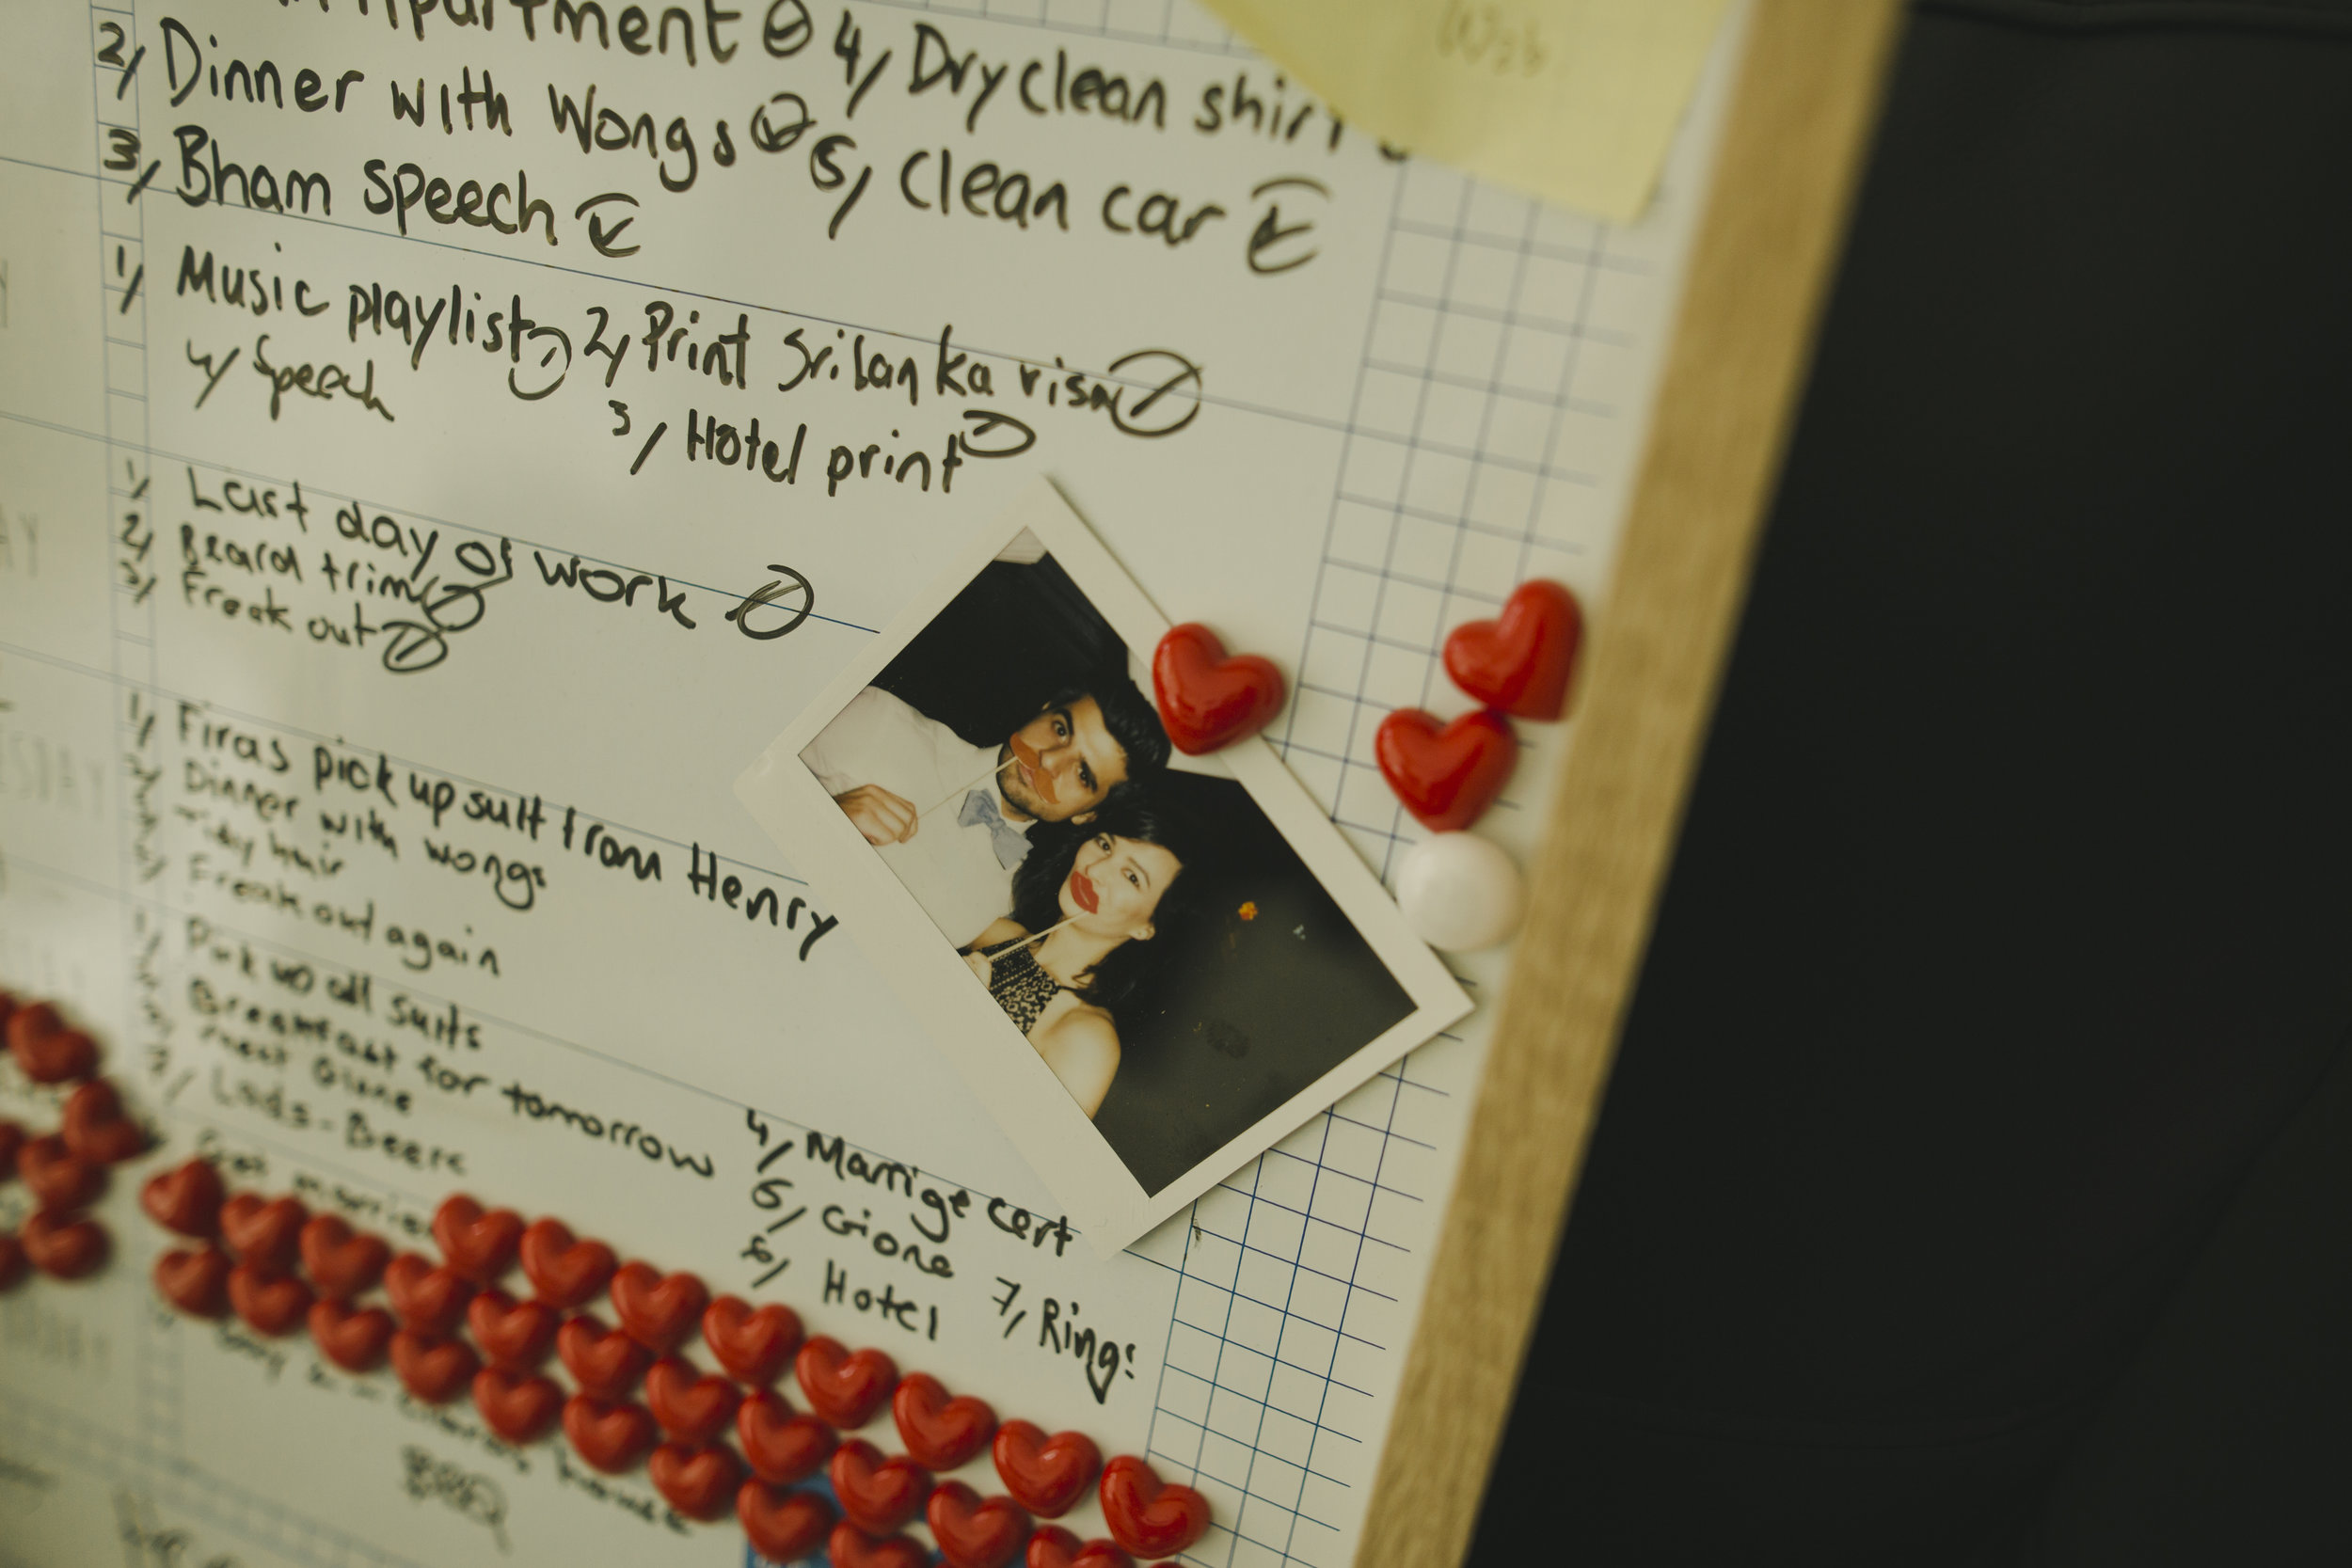 Apartment 4/ Dry clean shirt
2/ Dinner with Wongs 5/ Clean car
3/ Bham speech
1/ Music playlist 2/ Print Srilanka visa
4/ Speech 3/ Hotel print
1/ Last day of work
2/ Beard trim
3/ Freak out
1/ Firas pick up suit from Henry
2/ Dinner with wongs
Tidy hair
Freak out again
Pick up all suits
Breakfast for tomorrow 4/ Marrige cert
meet Gione 6/ Gione 7/ Rings
Lads - Beers 8/ Hotel
Get married